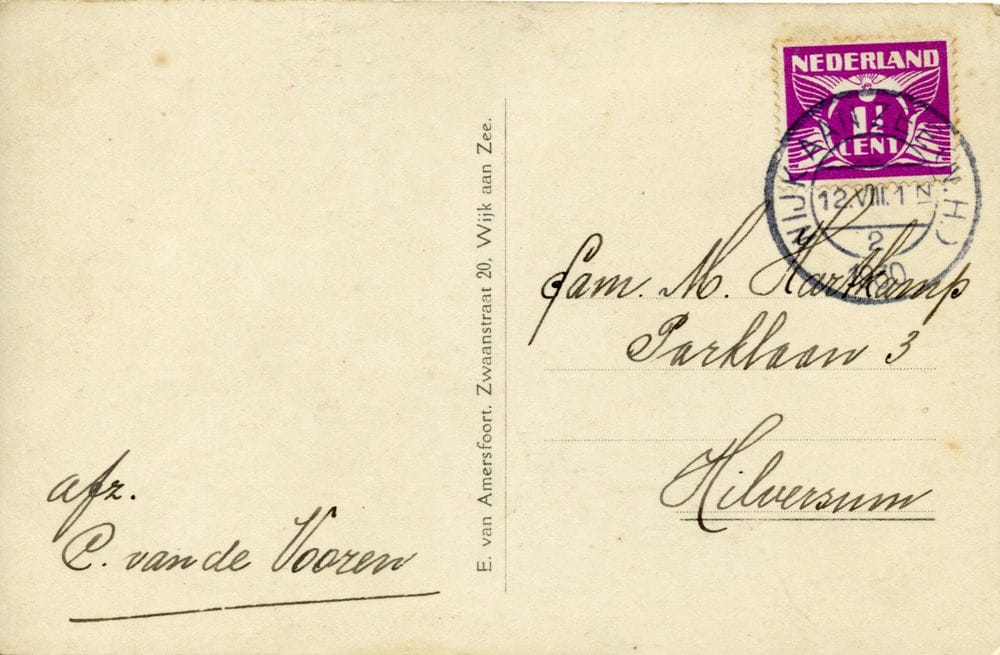 NEDERLAND
1½
CENT
WIJK AAN ZEE (N.H.)
12.VIII.1 N
2
Fam. M. Hartkamp
Parklaan 3
Hilversum
E. van Amersfoort, Zwaanstraat 20, Wijk aan Zee.
afz.
C. van de Vooren